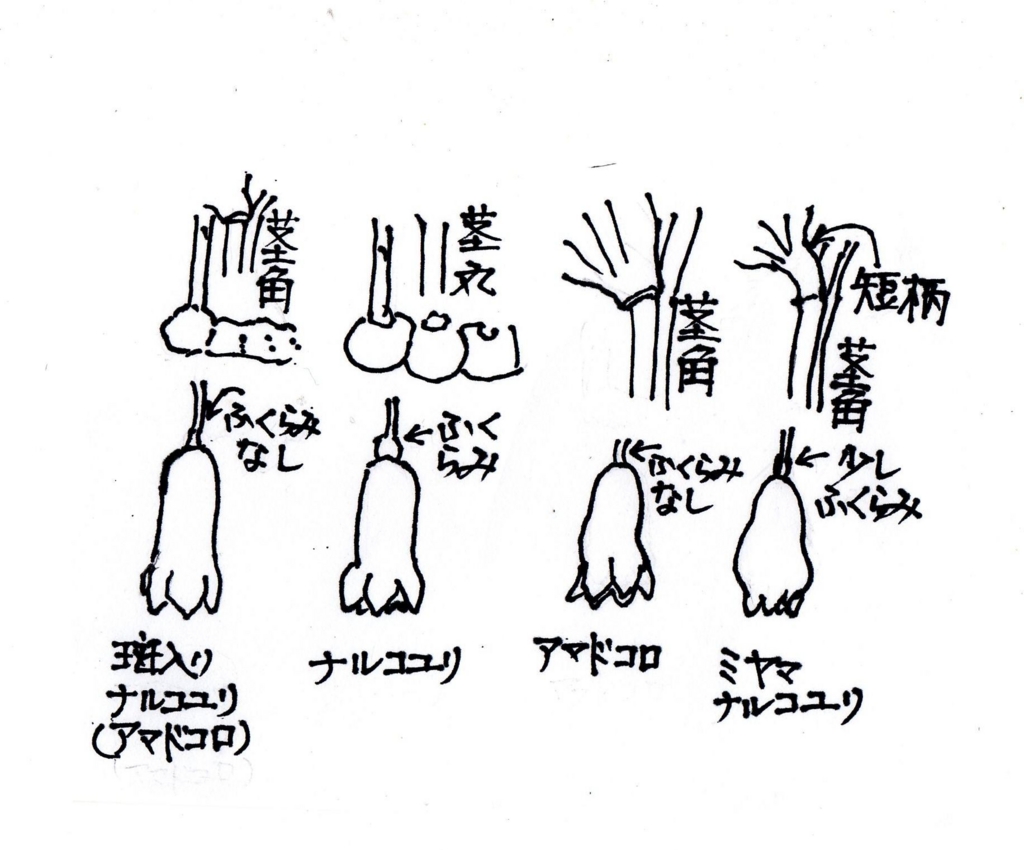 茎角
ふくらみ
なし
斑入り
ナルコユリ
(アマドコロ)
茎丸
ふく
らみ
ナルコユリ
茎角
ふくらみ
なし
アマドコロ
短柄
茎角
少し
ふくらみ
ミヤマ
ナルコユリ